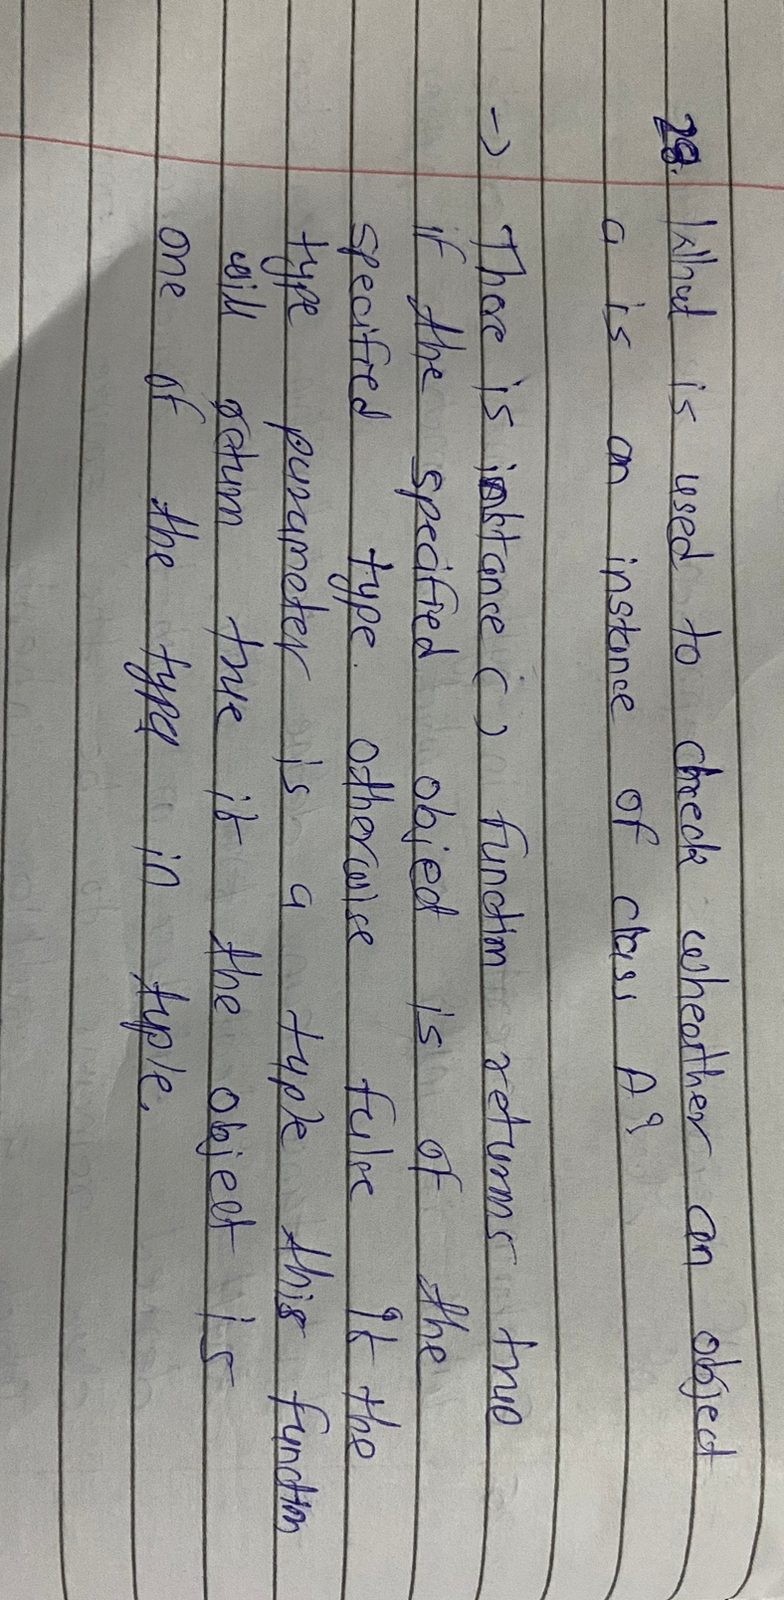 28. What is used to check wheather an object
a is an instance of class A?
→ There is instance () function returns true
if the specified object is of the
specified type. otherwise false If the
type parameter is a tuple this function
will return true if the object is
one of the type in tuple.